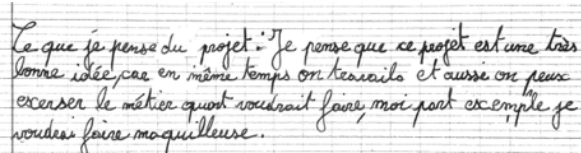 Ce que je pense du projet : Je pense que ce projet est une très
bonne idée, car en même temps on travails et aussi on peux
excerser le métier quont voudrait faire, moi part excemple je
voudrai faire maquilleuse.